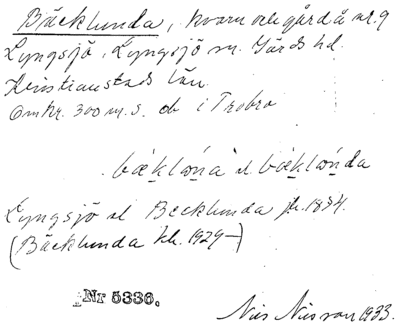 Bäcklunda, kvarn och gård å nr. 9
Lyngsjö, Lyngsjö sn. Gärds hd.
Kristianstads län.
Omkr. 300 m. s. i Trobro
bæklơna el bæklơnda
Lyngsjö el Becklunda jb. 1874.
(Bäcklunda kb. 1929-)
Nr 5336.
Nils Nilsson 1933.